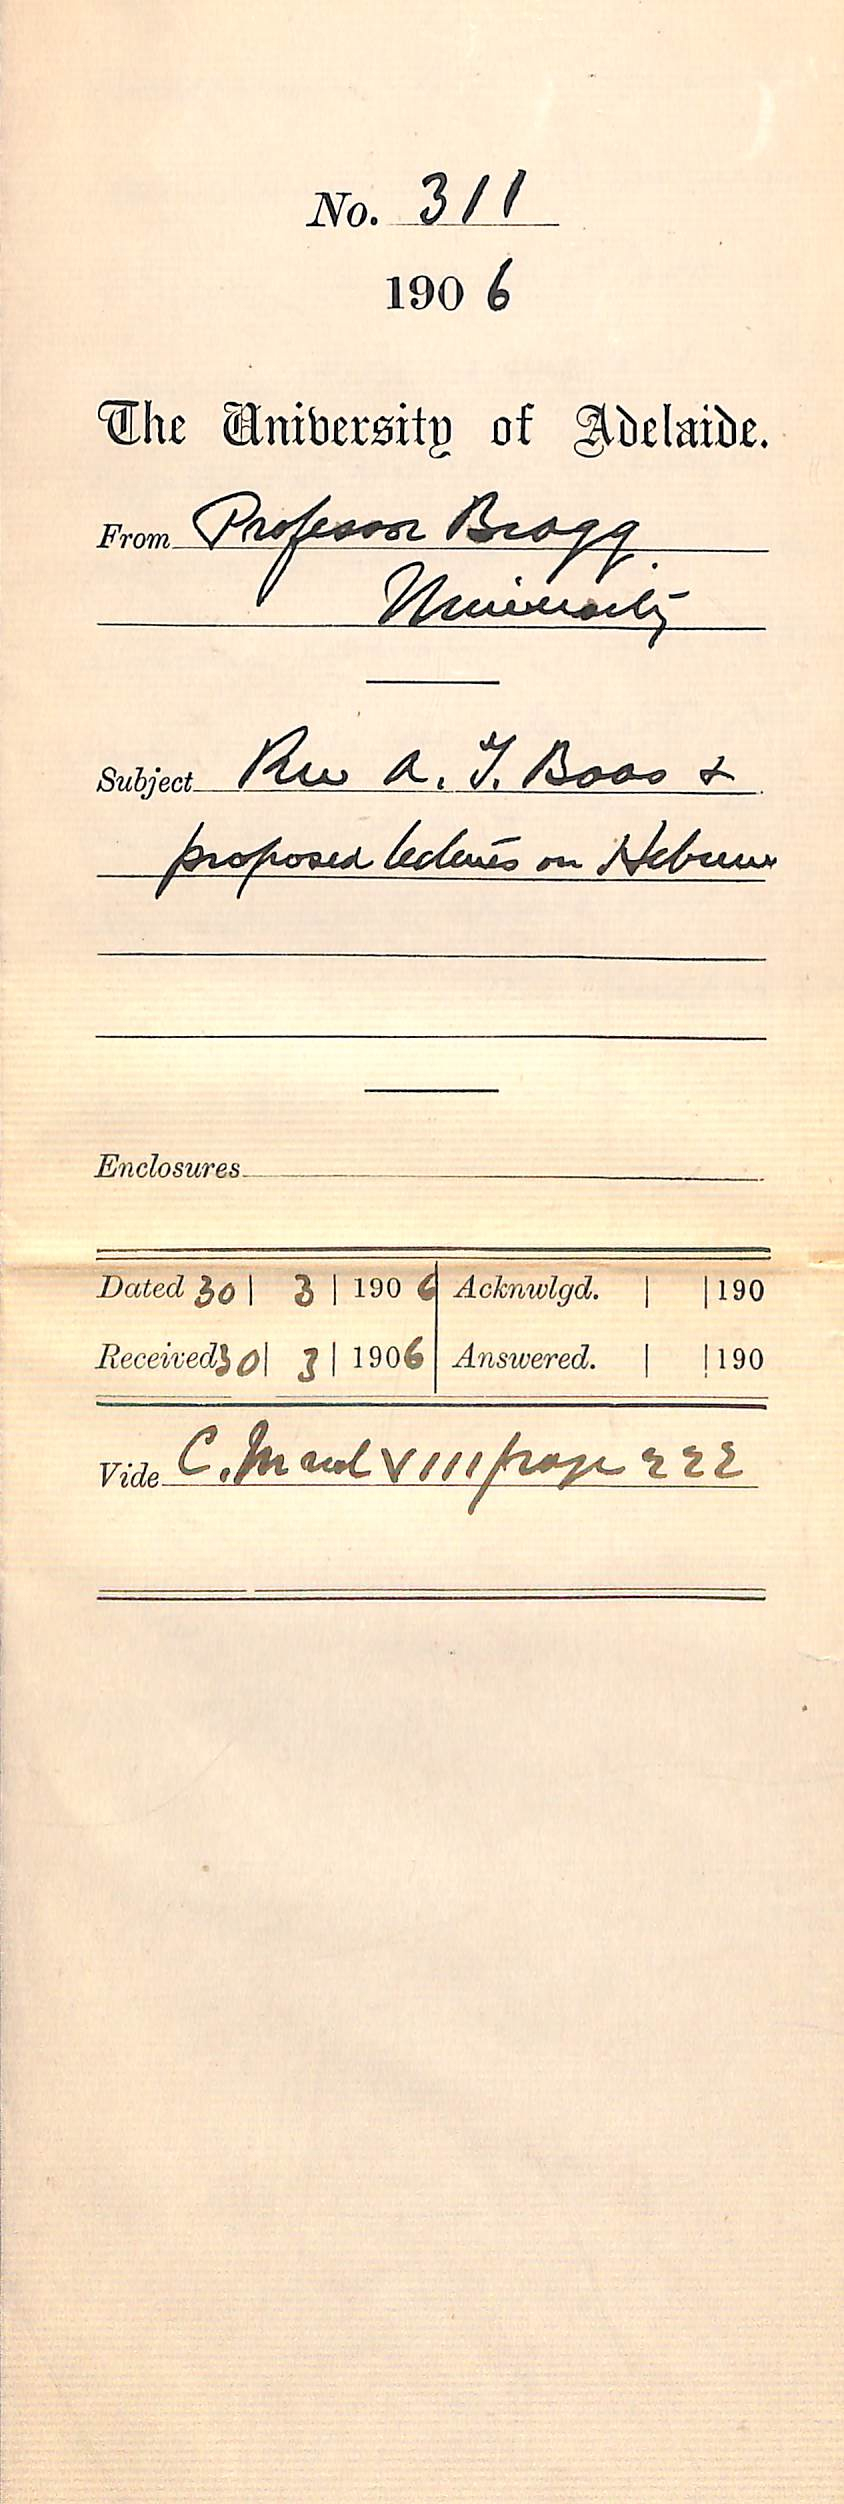 No. 311
1906
The University of Adelaide.
From Professor Bragg
University
Subject Rev A. T. Boas &
proposed lectures on Hebrew
Enclosures
Dated 30 | 3 | 1906 Acknwlgd. | | 190
Received 30 | 3 | 1906 Answered. | | 190
Vide C. M vol VIII page 222